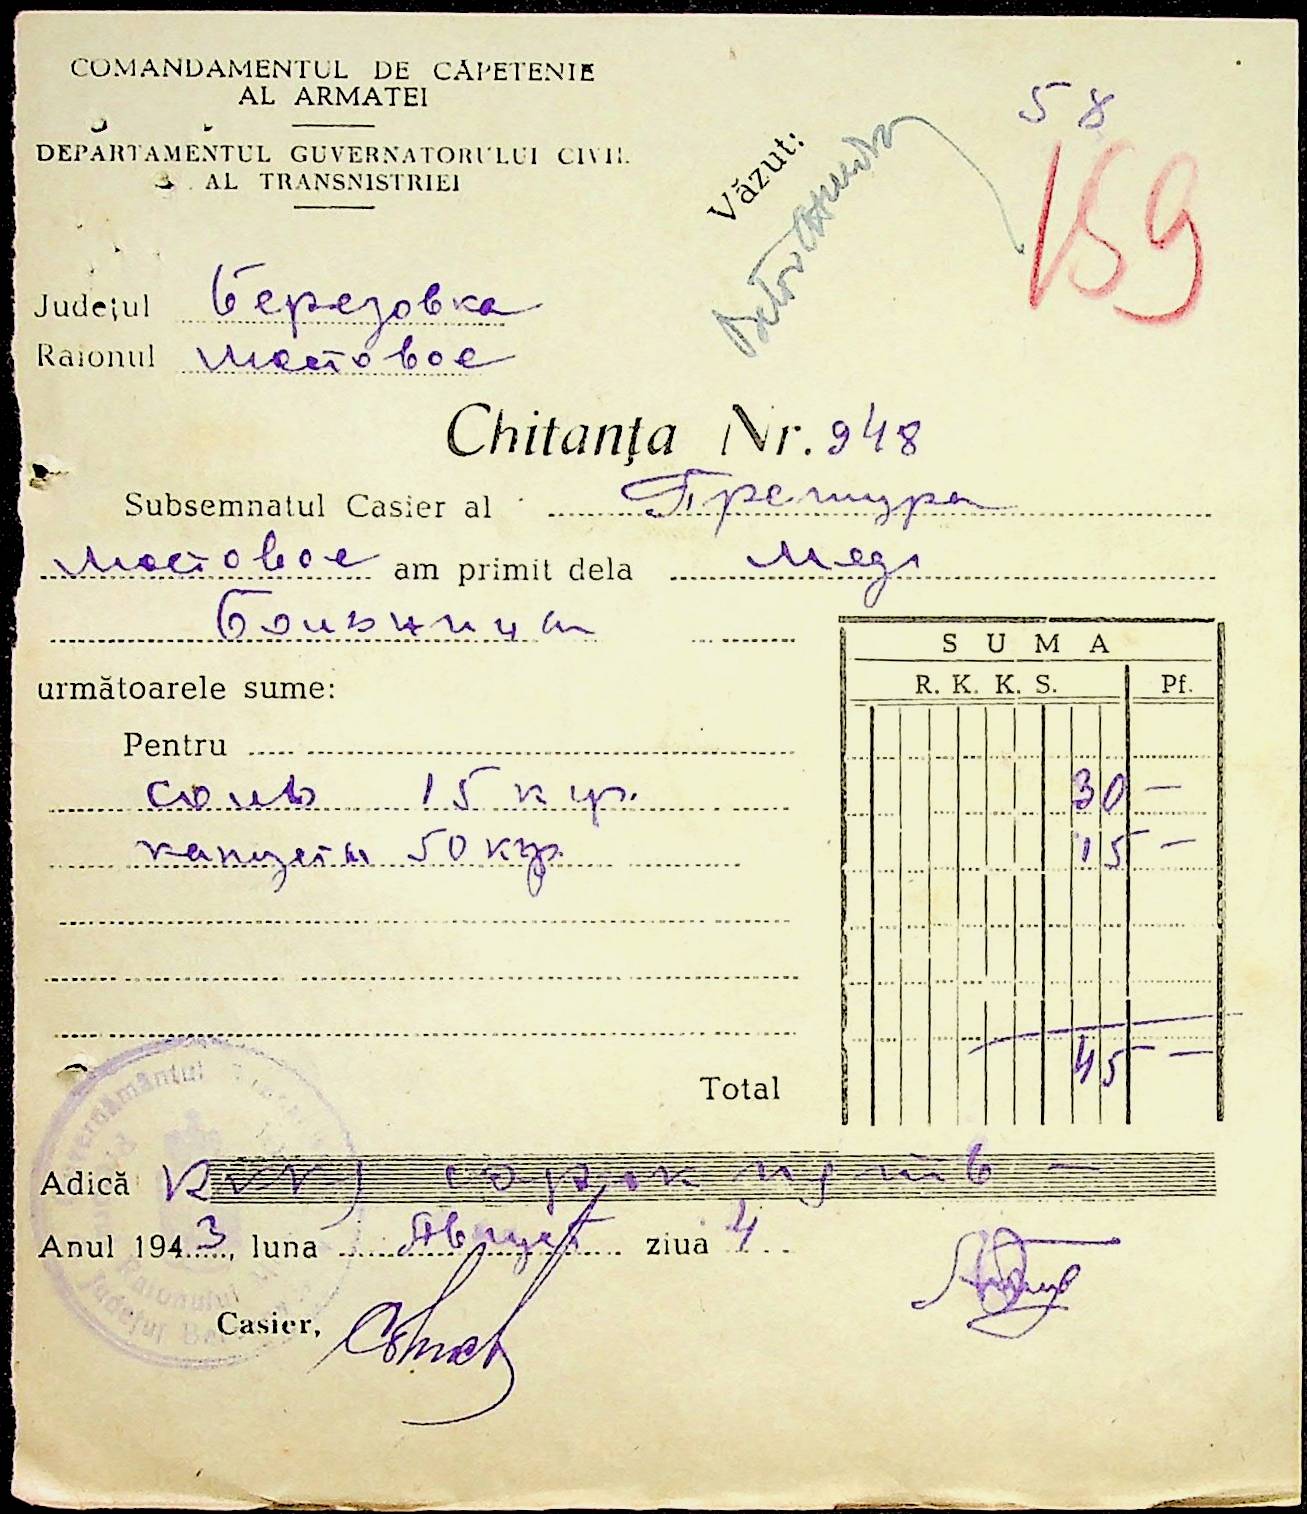 COMANDAMENTUL DE CĂPETENIE
AL ARMATEI
DEPARTAMENTUL GUVERNATORULUI CIVIL
AL TRANSNISTRIEI
Văzut:
58
159
Județul Березовка
Raionul Мостовое
Chitanța Nr. 948
Subsemnatul Casier al Претура
Мостовое am primit dela Мед
Больница
următoarele sume:
SUMA
R. K. K. S. Pf.
Pentru
соль 15 кгр. 30 —
капуста 50 кгр. 15 —
Total 45 —
Adică сорок пять —
Anul 1943, luna Август ziua 4
Casier,